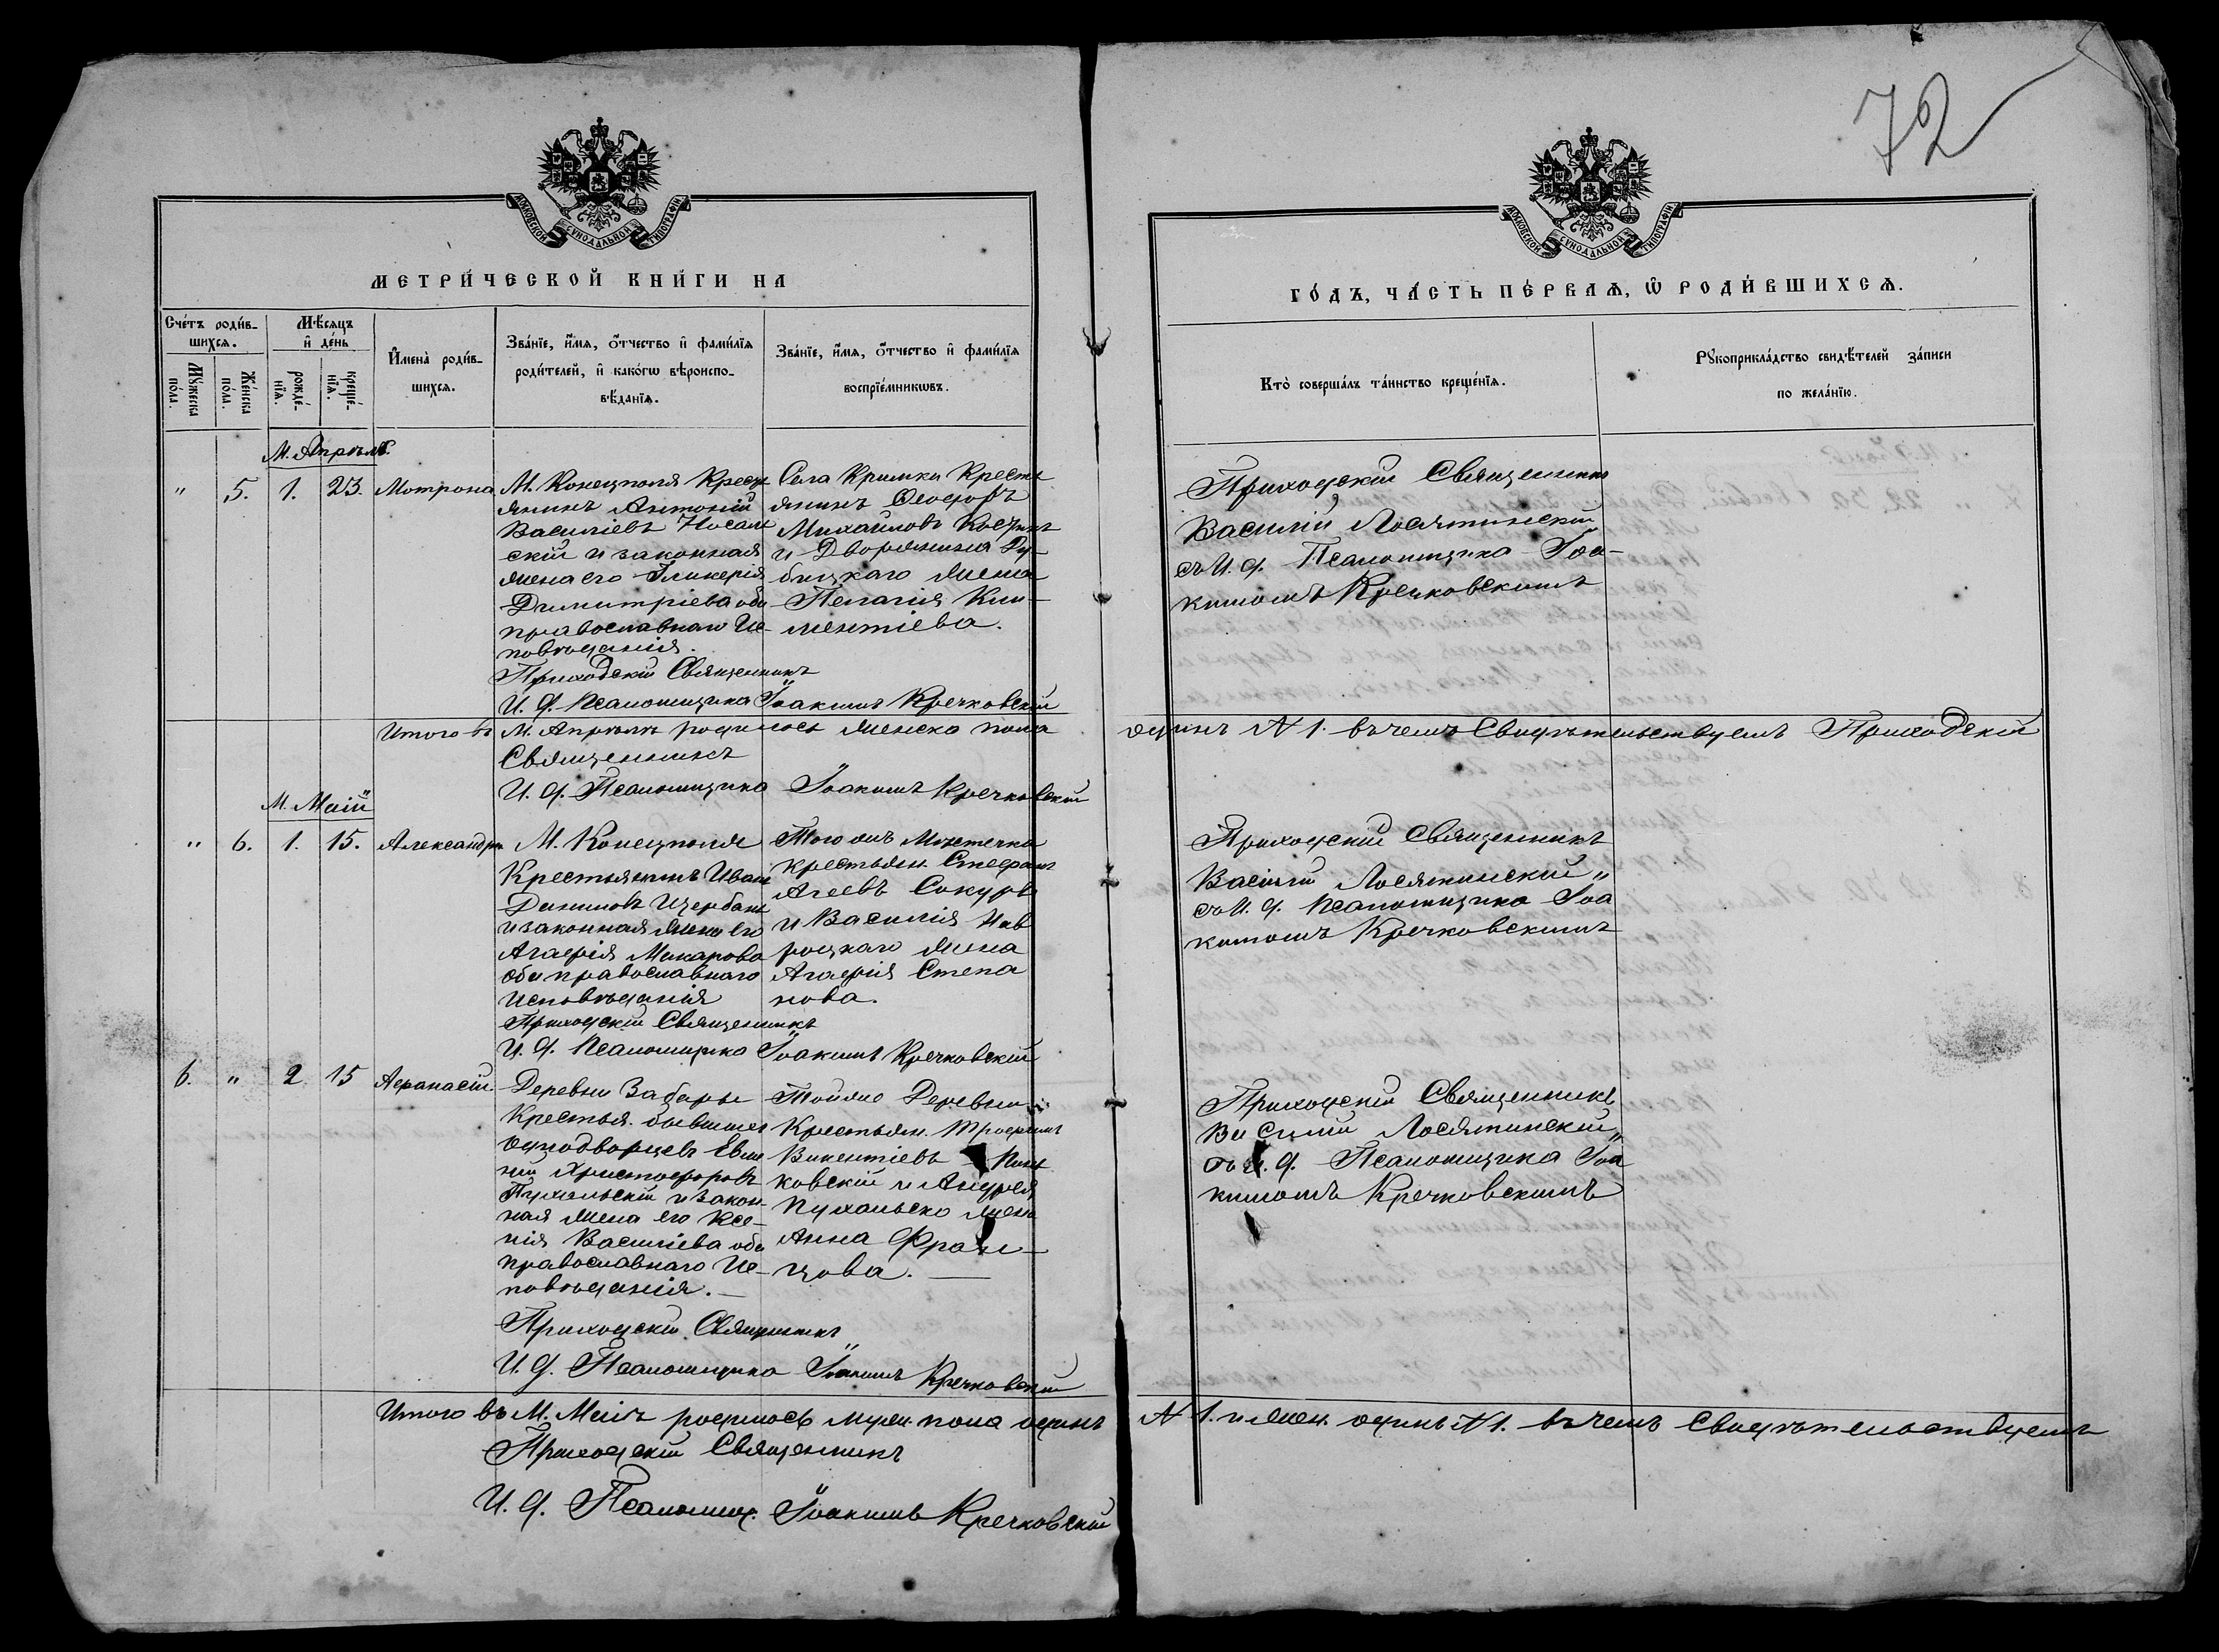 72
МОСКОВСКОЙ СѴНОДАЛЬНОЙ ТИПОГРАФІИ
МОСКОВСКОЙ СѴНОДАЛЬНОЙ ТИПОГРАФІИ
МЕТРИ́ЧЕСКОЙ КНИ́ГИ НА
ГО́ДЪ, ЧА́СТЬ ПЕ́РВАѦ, Ѽ РОДИ́ВШИХСѦ.
Сче́тъ роди́в-
шихсѧ.
Мꙋ́жеска по́ла.
Же́нска по́ла.
Мѣ́сѧцъ и҆ де́нь
рожде́-нїѧ.
креще́-нїѧ.
И҆мена̀ роди́в-
шихсѧ.
Зва́нїе, и҆́мѧ, ѻ҆́тчество и҆ фами́лїѧ
роди́телей, и҆ како́гѡ вѣроиспо-
вѣ́данїѧ.
Зва́нїе, и҆́мѧ, ѻ҆́тчество и҆ фами́лїѧ
воспрїе́мникѡвъ.
Кто̀ соверша́лъ та́инство креще́нїѧ.
Рꙋкоприкла́дство свидѣ́телей за́писи
по жела́нїю.
М. Апрѣль.
" 5. 1. 23. Мотрона
М. Конецполя Кресть
янинъ Антоній
Василіевъ Носал
скій и законная
жена его Гликерія
Димитріева оба
православнаго Ис-
повѣданія.
Приходскій Священникъ
И. д. Псаломщика Іоакимъ Кречковскій
Села Кримки Кресть
янинъ Ѳеодоръ
Михаиловъ
и Дворянина Ру-
бицкаго жена
Пелагія Кли-
ментіева.
Приходскій Священникъ
Василій Лосятинскій
съ И. д. Псаломщика Іоа-
кимомъ Кречковскимъ
Итого въ М. Апрѣлѣ родилось женска пола одинъ № 1. въ чемъ Свидѣтельствуемъ Приходскій
Священникъ
И. д. Псаломщика Іоакимъ Кречковскій
М. Маій
" 6. 1. 15. Александра
М. Конецполя
Крестьянинъ Иван
Даниловъ Щербань
и законная жена его
Агафія Макарова
оба православнаго
исповѣданія
Приходскій Священникъ
И. д. Псаломщика Іоакимъ Кречковскій
Того жъ Мѣстечка
крестьян. Стефанъ
Агеевъ Сокуръ
и Василія Нав
роцкаго жена
Агафія Степа
нова.
Приходскій Священникъ
Василій Лосятинскій
съ И. д. Псаломщика Іоа
кимомъ Кречковскимъ
6. " 2 15 Афанасій.
Деревни Забары
Крестья. бывшихъ
однодворцевъ Евге
ній Христофоровъ
Пухальскій и закон-
ная жена его Ксе-
нія Василіева оба
православнаго Ис-
повѣданія.
Приходскій Священникъ
И. д. Псаломщика Іоакимъ Кречковскій
Тойже Деревни
Крестьян. Трофимъ
Викентіевъ
ковскій и Андрея
Пухальско жена
Анна Фран-
цова.
Приходскій Священникъ
Василій Лосятинскій
съ И. д. Псаломщика Іоа
кимомъ Кречковскимъ
Итого въ М. Маіѣ родилось муж. пола одинъ № 1. и жен. одинъ № 1. въ чемъ Свидѣтельствуемъ
Приходскій Священникъ
И. д. Псаломщ. Іоакимъ Кречковскій